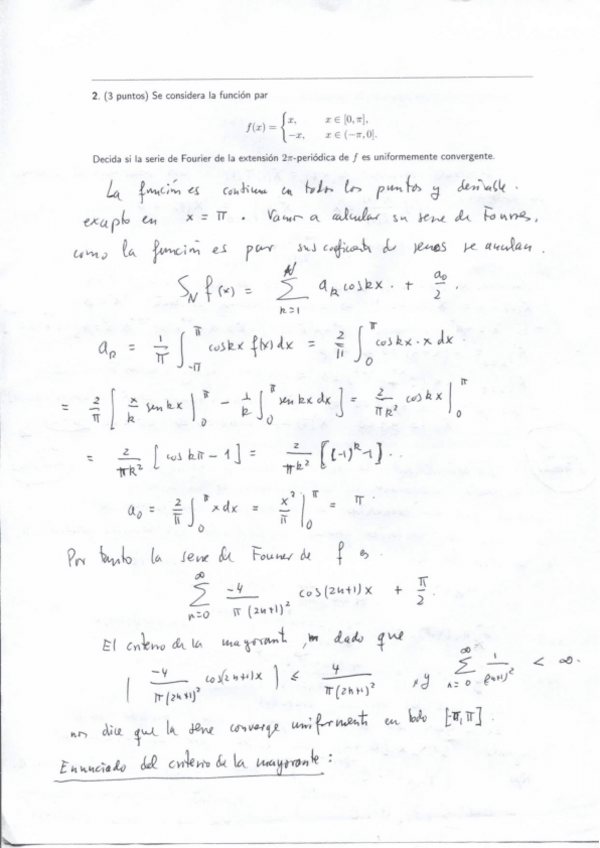 2. (3 puntos) Se considera la función par
f(x) = { x, x ∈ [0, π],
−x, x ∈ (−π, 0].
Decida si la serie de Fourier de la extensión 2π-periódica de f es uniformemente convergente.
La función es continua en todos los puntos y derivable.
excepto en x = π. Vamos a calcular su serie de Fourier,
como la función es par sus coeficientes de senos se anulan.
S_N f(x) = ∑_{k=1}^{N} a_k cos kx. + a_0/2.
a_k = 1/π ∫_{-π}^{π} cos kx f(x) dx = 2/π ∫_0^π cos kx · x dx
= 2/π [ x/k sen kx |_0^π − 1/k ∫_0^π sen kx dx ] = 2/(πk²) cos kx |_0^π
= 2/(πk²) [cos kπ − 1] = 2/(πk²) [(-1)^k − 1]..
a_0 = 2/π ∫_0^π x dx = x²/π |_0^π = π.
Por tanto la serie de Fourier de f es
∑_{n=0}^{∞} −4/(π(2n+1)²) cos(2n+1)x + π/2.
El criterio de la mayorante, dado que
| −4/(π(2n+1)²) cos(2n+1)x | ≤ 4/(π(2n+1)²), y ∑_{n=0}^{∞} 1/(2n+1)² < ∞.
nos dice que la serie converge uniformemente en todo [-π, π].
Enunciado del criterio de la mayorante: